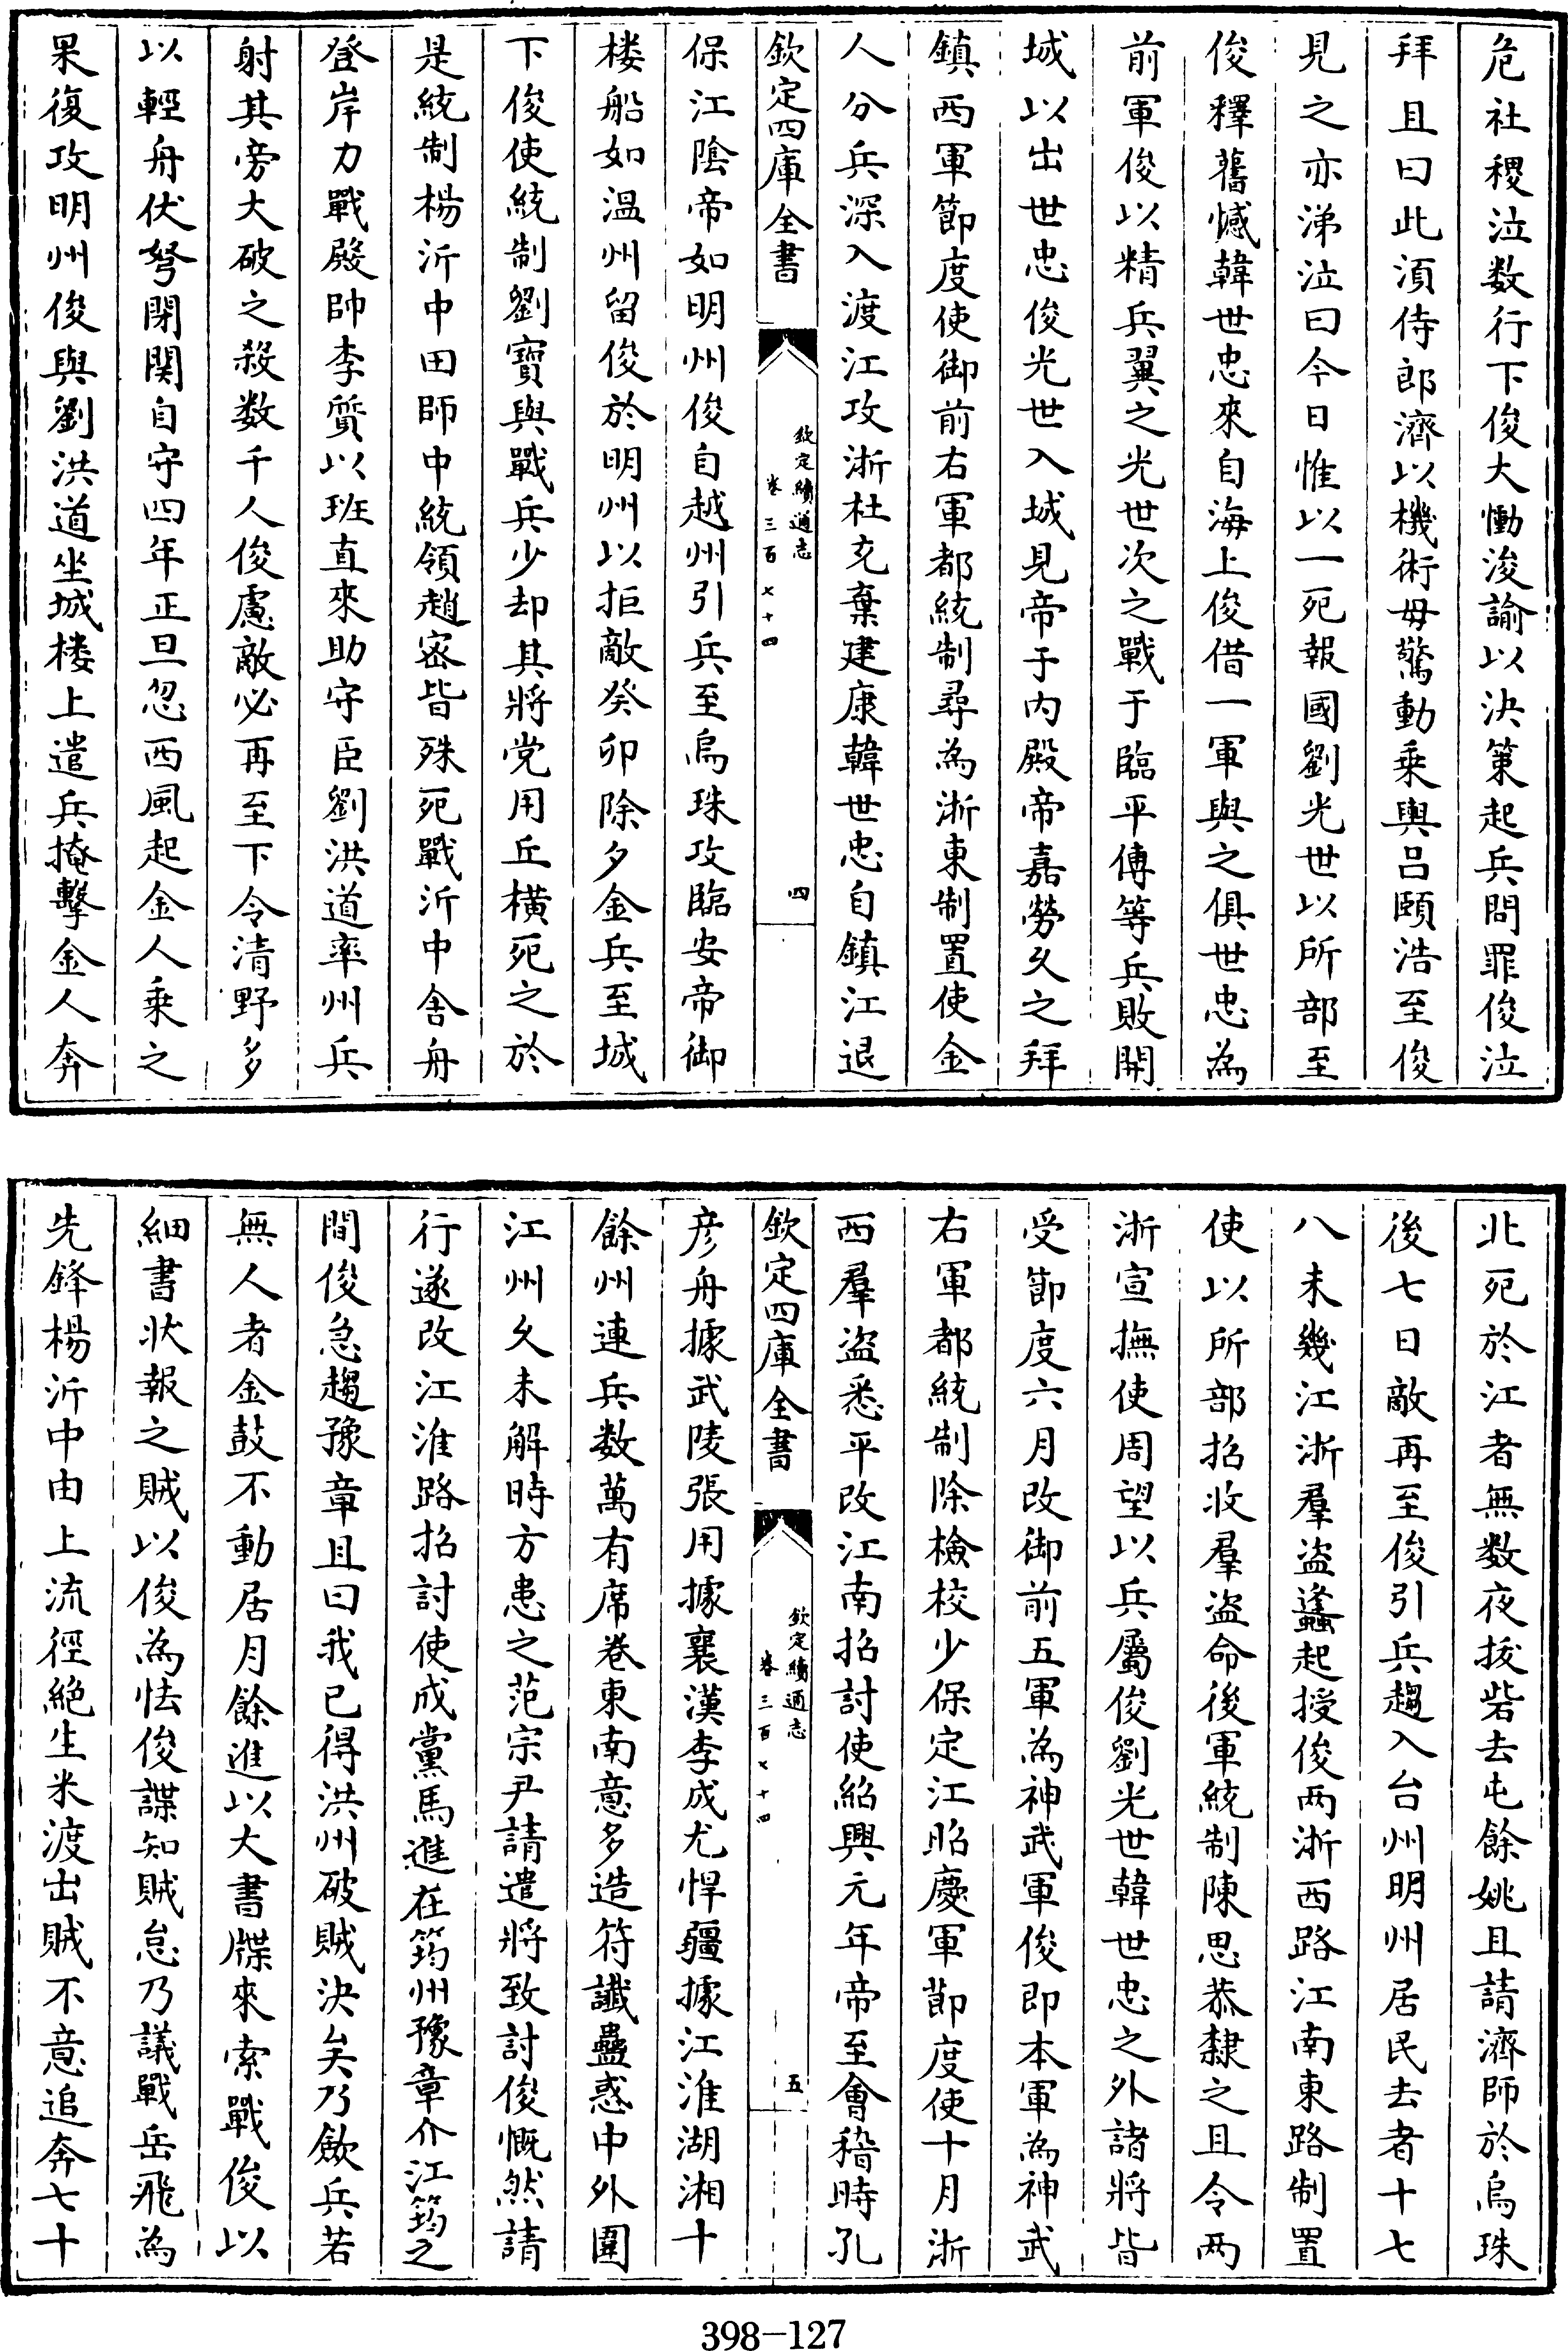 危社稷泣数行下俊大慟浚諭以決策起兵問罪俊泣
拜且曰此湏侍郎濟以機術毋驚動乗輿吕頤浩至俊
見之亦涕泣曰今日惟以一死報國劉光世以所部至
俊釋舊憾韓世忠來自海上俊借一軍與之俱世忠為
前軍俊以精兵翼之光世次之戰于臨平傅等兵敗開
城以出世忠俊光世入城見帝于内殿帝嘉勞久之拜
鎮西軍節度使御前右軍都統制尋為浙東制置使金
人分兵深入渡江攻浙杜充棄建康韓世忠自鎮江退
欽定四庫全書
欽定續通志
卷三百七十四
四
保江陰帝如明州俊自越州引兵至烏珠攻臨安帝御
楼船如温州留俊於明州以拒敵癸卯除夕金兵至城
下俊使統制劉寶與戰兵少却其將党用丘橫死之於
是統制楊沂中田師中統領趙宻皆殊死戰沂中舍舟
登岸力戰殿帥李質以班直來助守臣劉洪道率州兵
射其旁大破之殺数千人俊慮敵必再至下令清野多
以輕舟伏弩閉関自守四年正旦忽西風起金人乗之
果復攻明州俊與劉洪道坐城楼上遣兵掩擊金人奔
北死於江者無数夜拔砦去屯餘姚且請濟師於烏珠
後七日敵再至俊引兵趨入台州明州居民去者十七
八未幾江浙羣盗蠭起授俊兩浙西路江南東路制置
使以所部招收羣盗命後軍統制陳思恭隸之且令兩
浙宣撫使周望以兵屬俊劉光世韓世忠之外諸將皆
受節度六月改御前五軍為神武軍俊即本軍為神武
右軍都統制除檢校少保定江昭慶軍節度使十月浙
西羣盗悉平改江南招討使紹興元年帝至會稽時孔
欽定四庫全書
欽定續通志
卷三百七十四
五
彦舟據武陵張用據襄漢李成尤悍疆據江淮湖湘十
餘州連兵数萬有席卷東南意多造符讖蠱惑中外圍
江州久未解時方患之范宗尹請遣將致討俊慨然請
行遂改江淮路招討使成黨馬進在筠州豫章介江筠之
間俊急趨豫章且曰我已得洪州破賊決矣乃歛兵若
無人者金鼓不動居月餘進以大書牒來索戰俊以
細書状報之賊以俊為怯俊諜知賊怠乃議戰岳飛為
先鋒楊沂中由上流徑絶生米渡出賊不意追奔七十
398-127